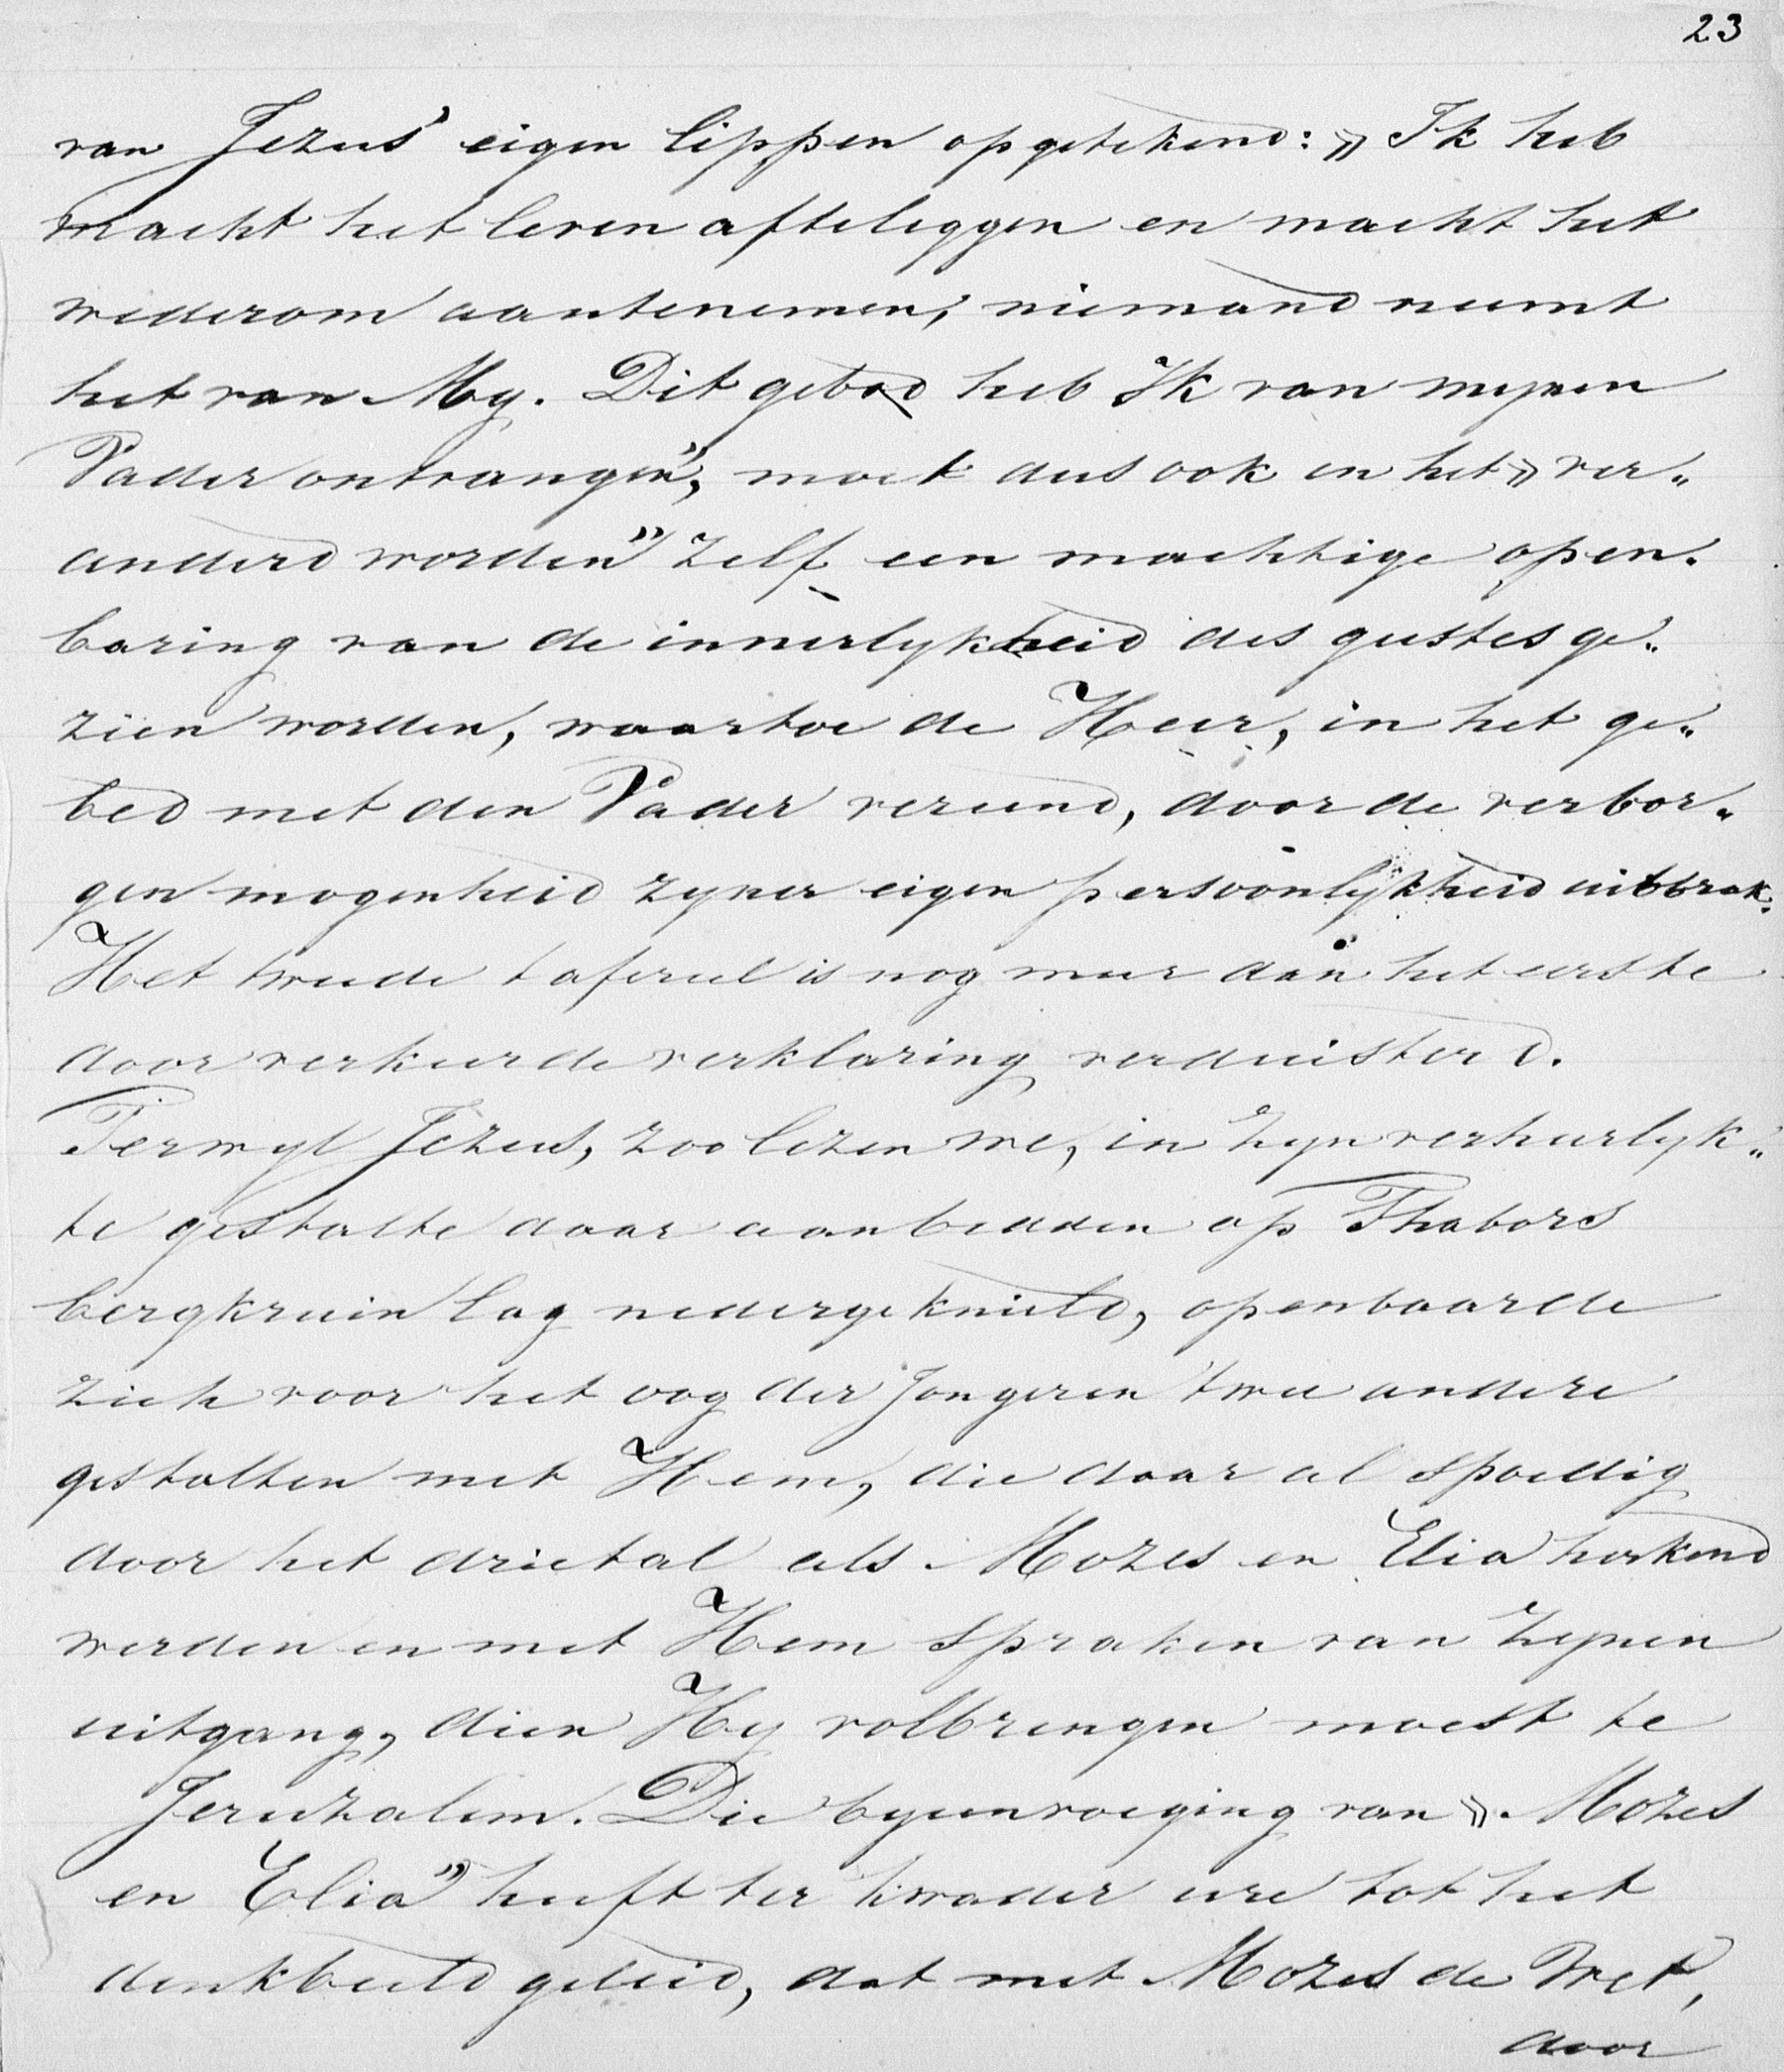 23
van Jezus' eigen lippen opgetekend: „Ik heb
macht het leven afteleggen en macht het
wederom aantenemen, niemand neemt
het van My. Dit gebod heb Ik van mynen
Vader ontvangen", moet dus ook in het „ver„
anderd worden" zelf een machtige open„
baring van de innerlykheid des geestes ge„
zien worden, waartoe de Heer, in het ge„
bed met den Vader vereend, door de verbor„
gen mogenheid zyner eigen persoonlijkheid uitbrak.
Het tweede tafereel is nog meer dan het eerste
door verkeerde verklaring verduisterd.
Terwyl Jezus, zoo lezen we, in zyn verheerlyk„
te gestalte daar aanbidden op Thabors
bergkruin lag nedergeknield, openbaarde
zich voor het oog der Jongeren twee andere
gestalten met Hem, die daar al spoedig
door het drietal als Mozes en Elia herkend
werden en met Hem spraken van zynen
uitgang, dien Hy volbrengen moest te
Jeruzalem. Die byeenvoeging van „Mozes
en Elia" heeft ter kwader ure tot het
denkbeeld geleid, dat met Mozes de Wet,
door